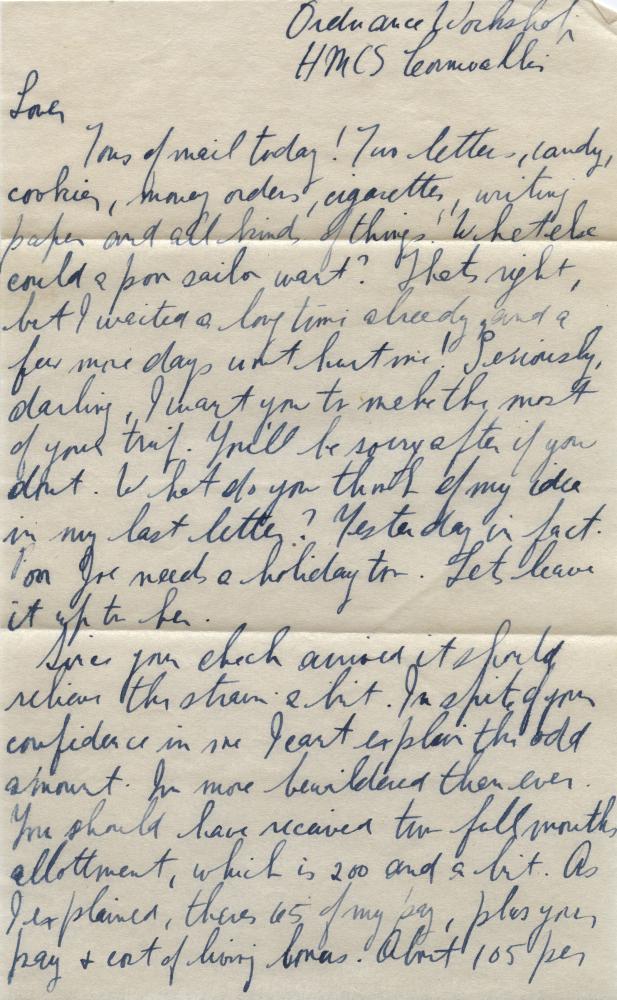 Ordnance Workshop
HMCS Cornwallis
Lover
Tons of mail today! Two letters, candy,
cookies, money orders, cigarettes, writing
paper and all kinds of things! What else
could a poor sailor want? Thats right,
but I waited a long time already, and a
few more days wont hurt me! Seriously,
darling, I want you to make the most
of your trip. You'll be sorry after if you
dont. What do you think of my idea
in my last letter? Yesterday in fact.
Poor Joe needs a holiday too. Lets leave
it up to her.
Since your check arrived it should
relieve the strain a bit. In spite of your
confidence in me I cant explain the odd
amount. Im more bewildered than ever.
You should have received two full months
allottment, which is 200 and a bit. As
I explained, theres 65 of my pay, plus your
pay & cost of living bonus. About 105 per